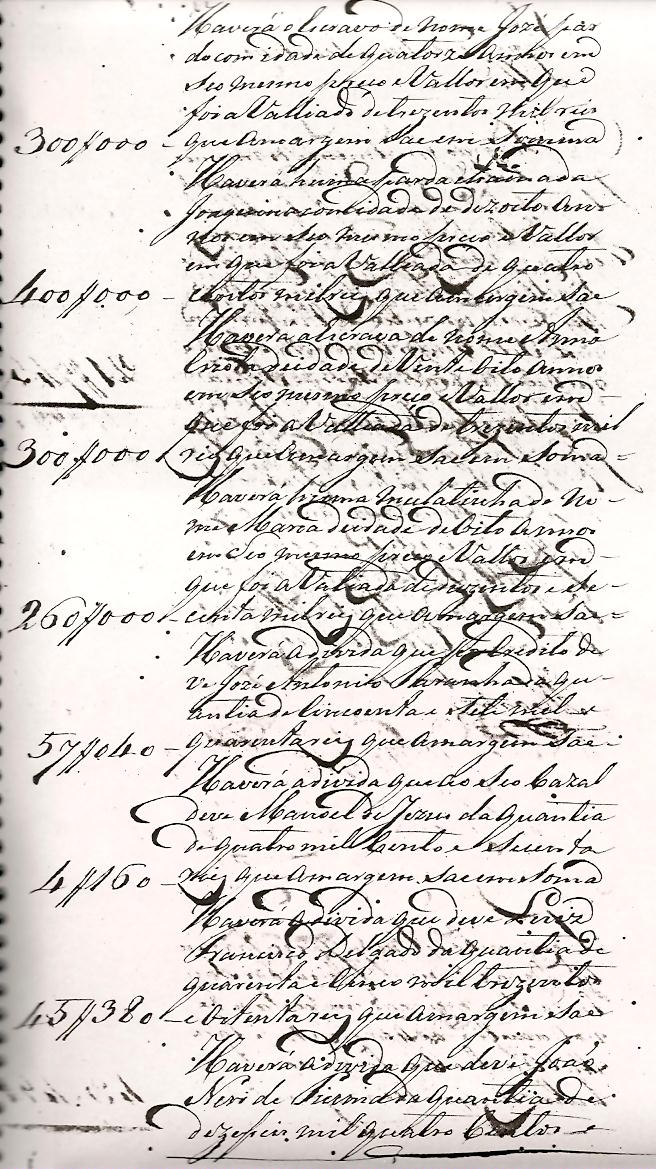 Haverá o Escravo de nome José par
do com idade de quatorze Annos em
seo mesmo preço e Vallor em que
foi a Valliado de trezentos mil reis
300$000 - que Amargem sae em Somma
Haverá huma parda chamada
Joaquina com idade de dezoito An
nos em seo mesmo preço e Vallor
em que foi a Valliada de quatro
400$000 - centos mil reis que Amargem sae
Haverá a Escrava de nome Anna
Crioula de idade de Vinte Oito Annos
em seo mesmo preço e Vallor em
que foi a Valliada de trezentos mil
300$000 reis que Amargem sae em Somã =
Haverá huma mulatinha de No-
me Maria de idade de Oito Annos
em seo mesmo preço e Vallor em
que foi a Valiada duzentos e se-
260$000 - centa mil reis que Amargem sae =
Haverá a divida que por Credito de
ve José Antonio da qu-
antia de Cincoenta e Sete mil e
57$040 - quarenta reis que Amargem sae
Haverá a divida que ao seo Cazal
deve Manoel de Jezus da quantia
de quatro mil Cento e Secenta
4$160 - reis que Amargem sae em Somã
Haverá a divida que deve Luiz
Francisco Delgado da quantia de
quarenta e Cinco mil trezentos
45$380 - e Oitenta reis que Amargem sae
Haverá a divida que deve João
Neri de da quantia de
dezeseis mil quatro Centos e